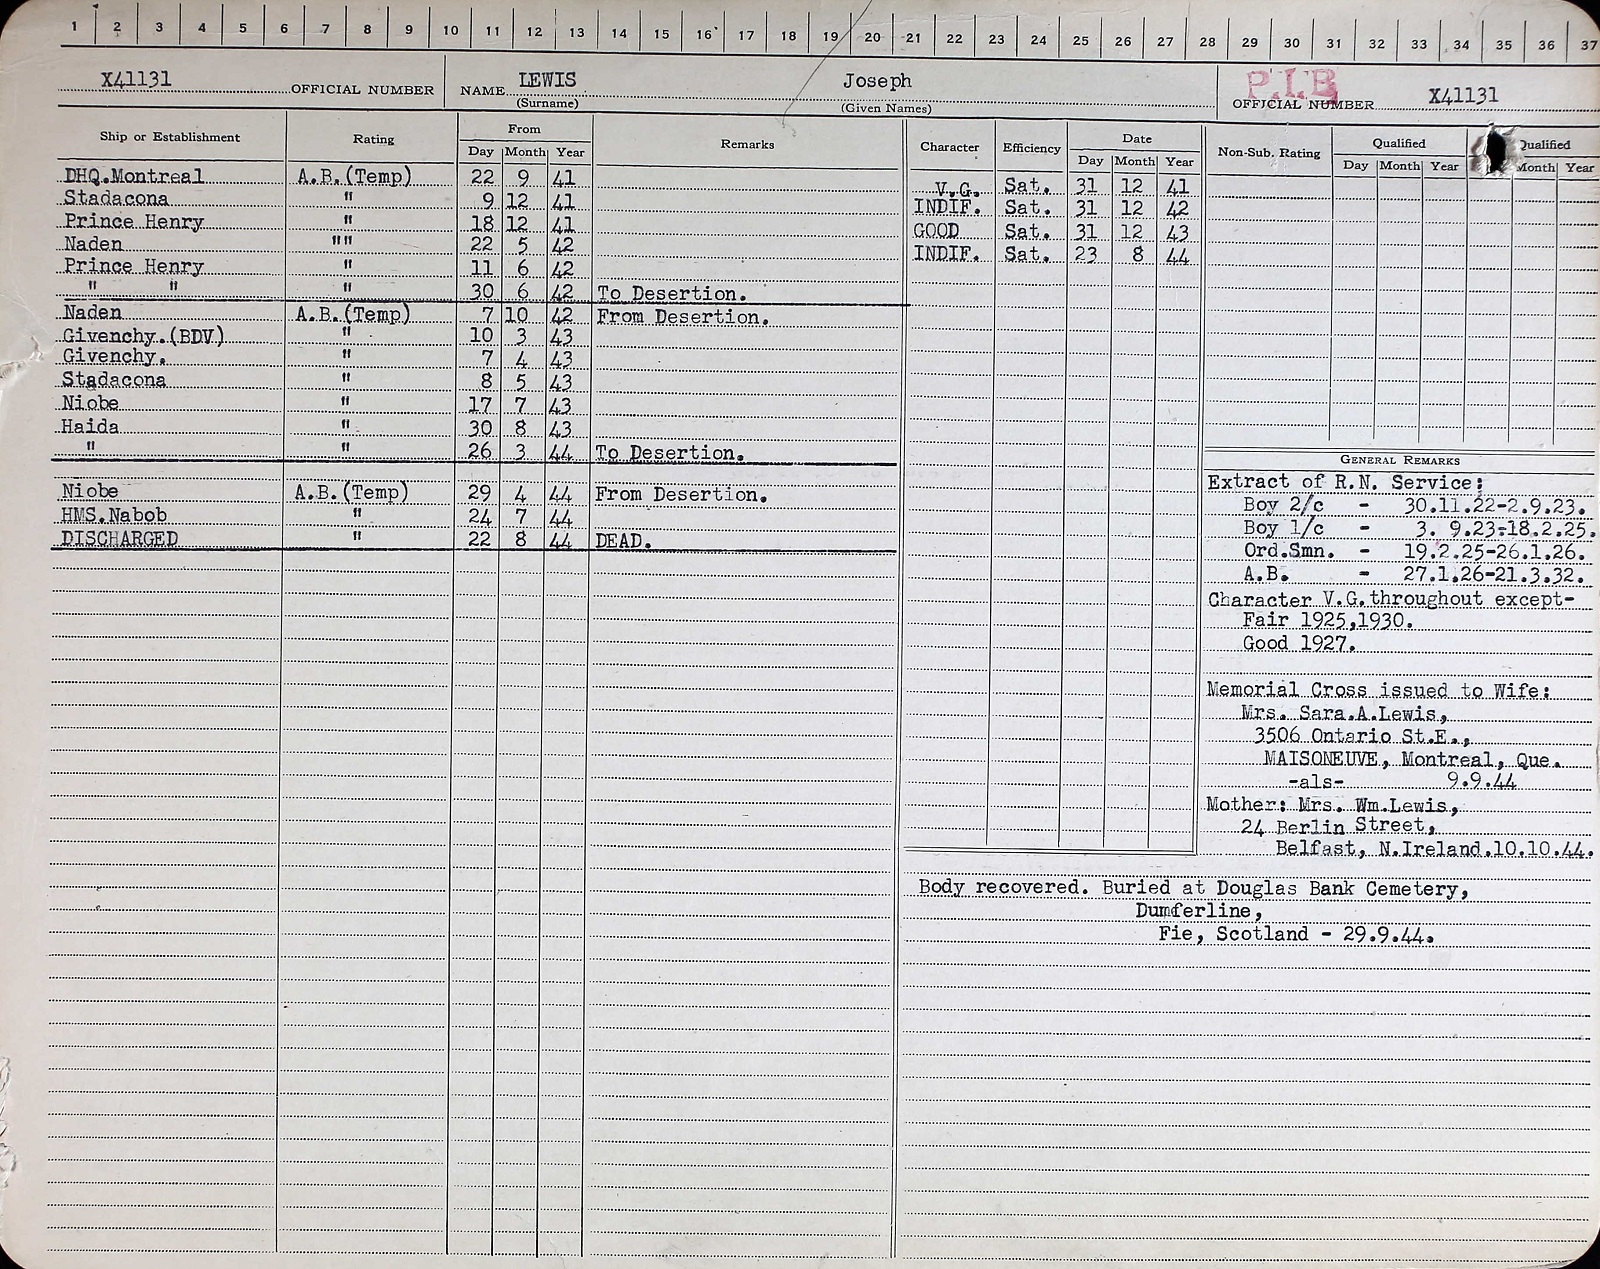 1 2 3 4 5 6 7 8 9 10 11 12 13 14 15 16 17 18 19 20 21 22 23 24 25 26 27 28 29 30 31 32 33 34 35 36 37
X41131 OFFICIAL NUMBER NAME LEWIS Joseph P.I.B OFFICIAL NUMBER X41131
(Surname) (Given Names)
Ship or Establishment Rating From Remarks Character Efficiency Date Non-Sub. Rating Qualified Qualified
Day Month Year Day Month Year Day Month Year Month Year
DHQ.Montreal A.B.(Temp) 22 9 41 V.G. Sat. 31 12 41
Stadacona " 9 12 41 INDIF. Sat. 31 12 42
Prince Henry " 18 12 41 GOOD Sat. 31 12 43
Naden "" 22 5 42 INDIF. Sat. 23 8 44
Prince Henry " 11 6 42
" " " 30 6 42 To Desertion.
Naden A.B.(Temp) 7 10 42 From Desertion.
Givenchy.(BDV) " 10 3 43
Givenchy. " 7 4 43
Stadacona " 8 5 43
Niobe " 17 7 43
Haida " 30 8 43
" " 26 3 44 To Desertion.
Niobe A.B.(Temp) 29 4 44 From Desertion.
HMS.Nabob " 24 7 44
DISCHARGED " 22 8 44 DEAD.
GENERAL REMARKS
Extract of R.N. Service:
Boy 2/c - 30.11.22-2.9.23.
Boy 1/c - 3. 9.23-18.2.25.
Ord.Smn. - 19.2.25-26.1.26.
A.B. - 27.1.26-21.3.32.
Character V.G.throughout except-
Fair 1925,1930.
Good 1927.
Memorial Cross issued to Wife:
Mrs. Sara.A.Lewis,
3506 Ontario St.E.,
MAISONEUVE, Montreal, Que.
-als- 9.9.44
Mother: Mrs. Wm.Lewis,
24 Berlin Street,
Belfast, N.Ireland.10.10.44.
Body recovered. Buried at Douglas Bank Cemetery,
Dumferline,
Fie, Scotland - 29.9.44.